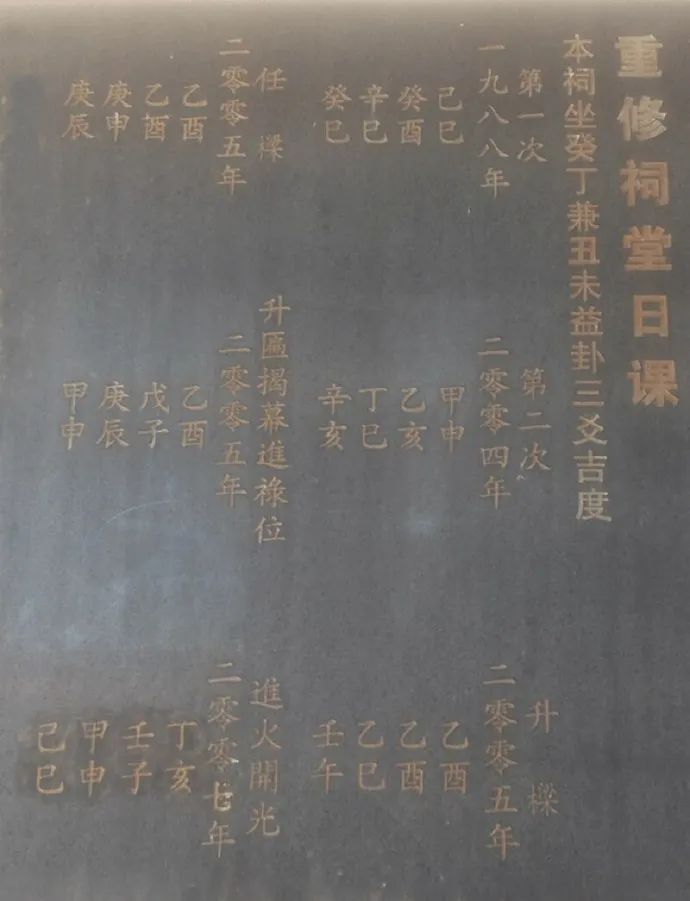 重修祠堂日课
本祠坐癸丁兼丑未益卦三爻吉度
第一次
一九八八年
己巳
癸酉
辛巳
癸巳
第二次
二零零四年
甲申
乙亥
丁巳
辛亥
升樑
二零零五年
乙酉
乙酉
乙巳
壬午
任樑
二零零五年
乙酉
乙酉
庚申
庚辰
升區揭幕進祿位
二零零五年
乙酉
戊子
庚辰
甲申
進火開光
二零零七年
丁亥
壬子
甲申
己巳